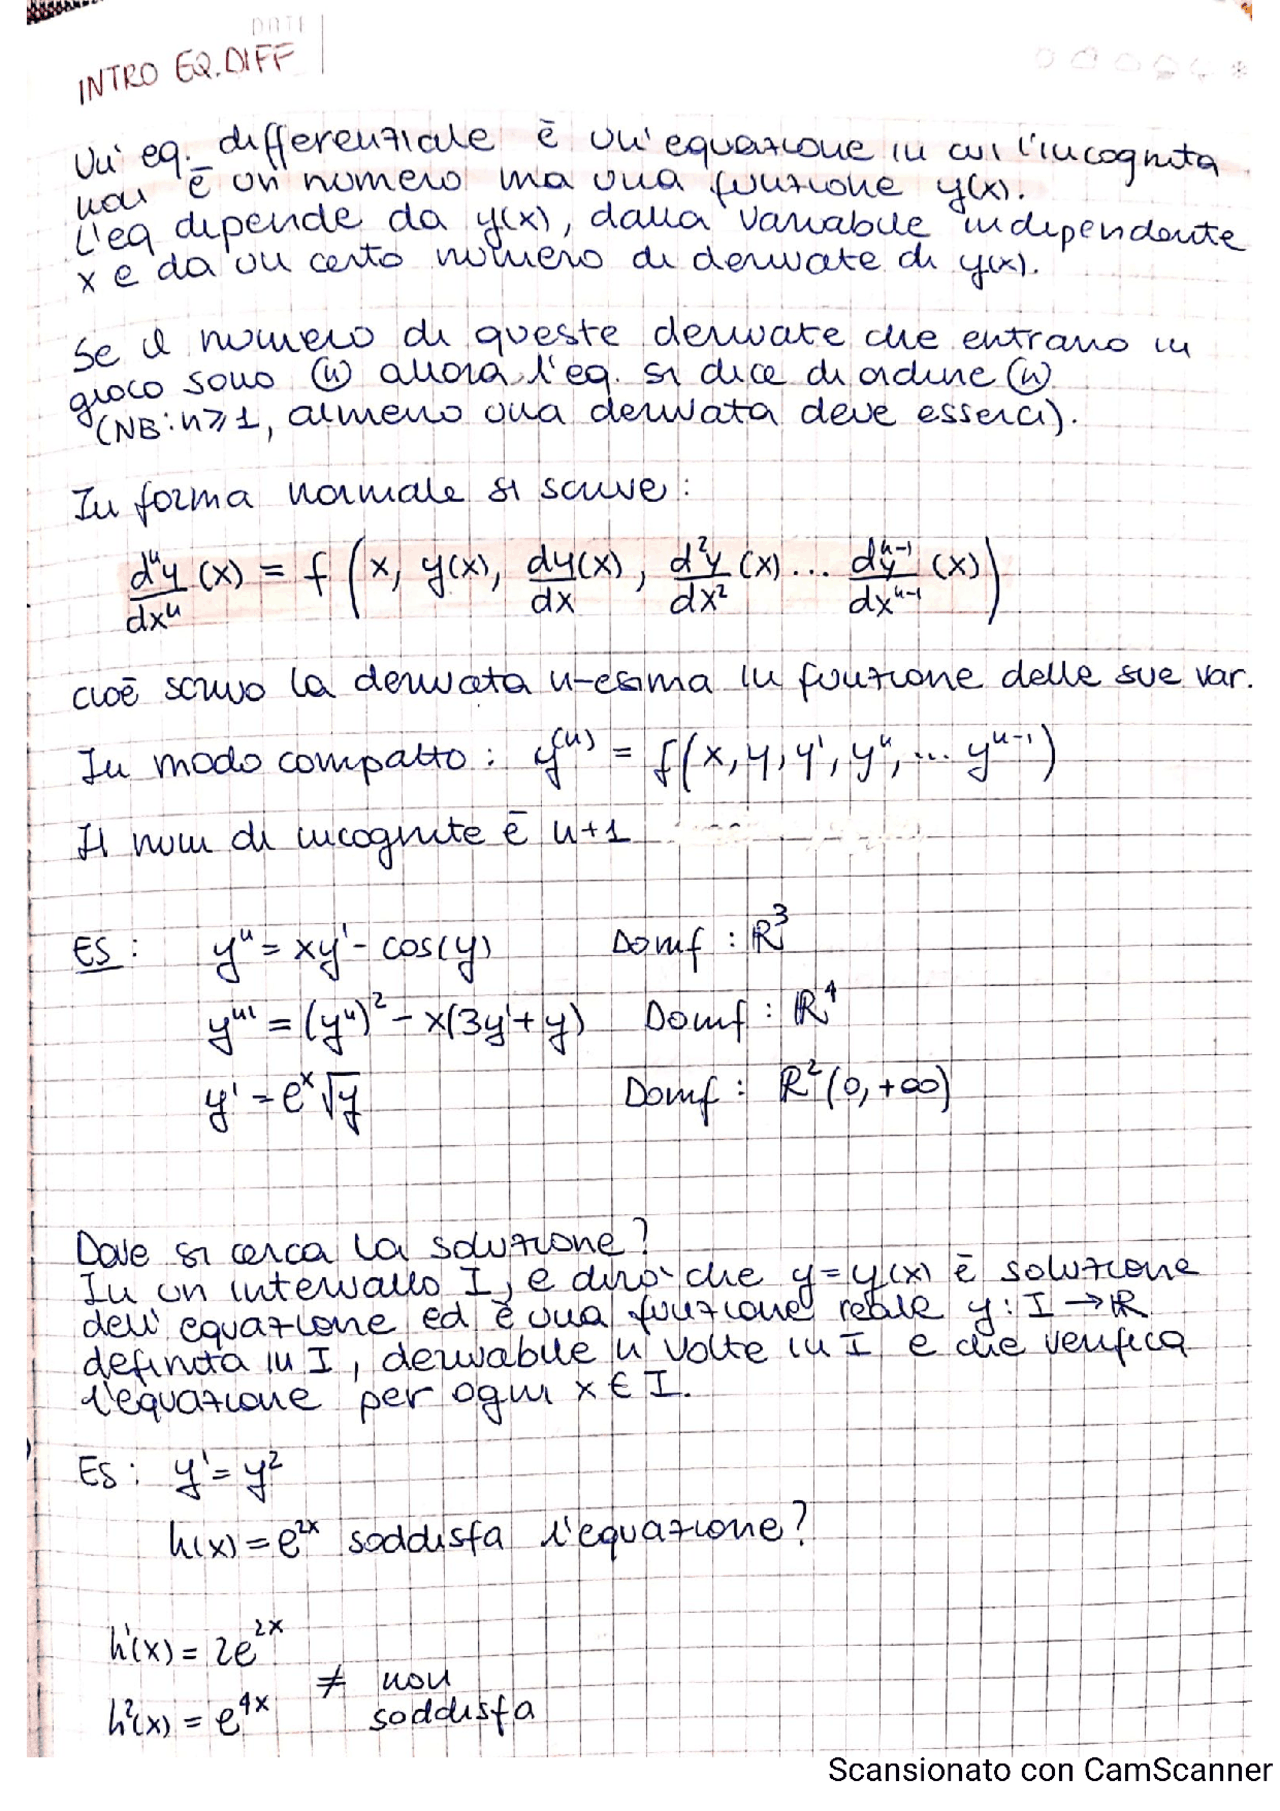 DATE
INTRO EQ. DIFF
Un' eq. differenziale è un' equazione in cui l'incognita
non è un numero ma una funzione y(x).
L'eq dipende da y(x), dalla variabile indipendente
x e da un certo numero di derivate di y(x).
Se il numero di queste derivate che entrano in
gioco sono (n) allora l'eq. si dice di ordine (n).
(NB: n ≥ 1, almeno una derivata deve esserci).
In forma normale si scrive:
dⁿy/dxⁿ (x) = f (x, y(x), dy(x)/dx, d²y/dx² (x) ... dⁿ⁻¹y/dxⁿ⁻¹ (x))
cioè scrivo la derivata n-esima in funzione delle sue var.
In modo compatto: y⁽ⁿ⁾ = f(x, y, y', y", ... yⁿ⁻¹)
Il num di incognite è n+1
ES: y" = xy' - cos(y) Domf: ℝ³
y"' = (y")² - x(3y' + y) Domf: ℝ⁴
y' = eˣ√y Domf: ℝ²(0, +∞)
Dove si cerca la soluzione?
In un intervallo I, e dirò che y = y(x) è soluzione
dell' equazione ed è una funzione reale y: I → ℝ
definita in I, derivabile n volte in I e che verifica
l'equazione per ogni x ∈ I.
ES: y' = y²
h(x) = e²ˣ soddisfa l'equazione?
h'(x) = 2e²ˣ
≠ non
h²(x) = e⁴ˣ soddisfa
Scansionato con CamScanner